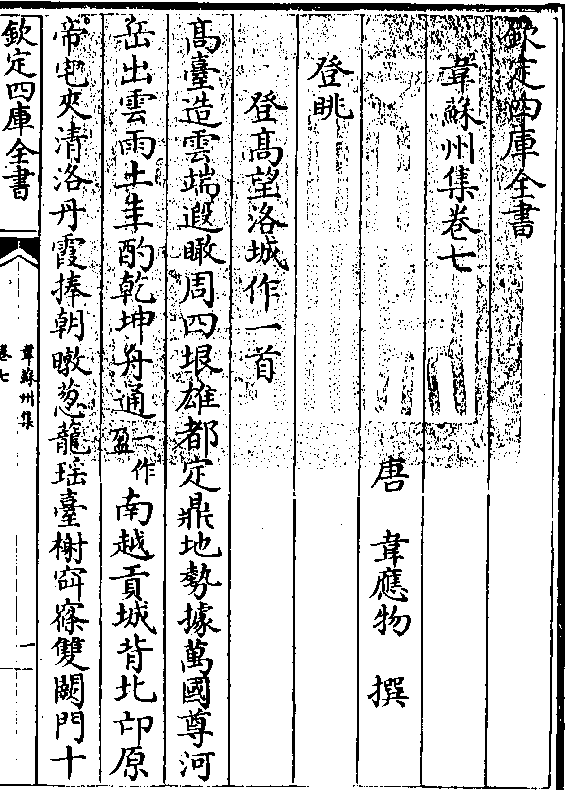 欽定四庫全書
韋蘇州集卷七
唐 韋應物 撰
登眺
登髙望洛城作一首
髙臺造雲端遐瞰周四垠雄都定鼎地勢據萬國尊河
岳出雲雨土圭酌乾坤舟通一作盈南越貢城背北邙原
帝宅夾清洛丹霞捧朝暾葱蘢瑶臺榭窅窱雙闕門十
欽定四庫全書
韋蘇州集
卷七
一